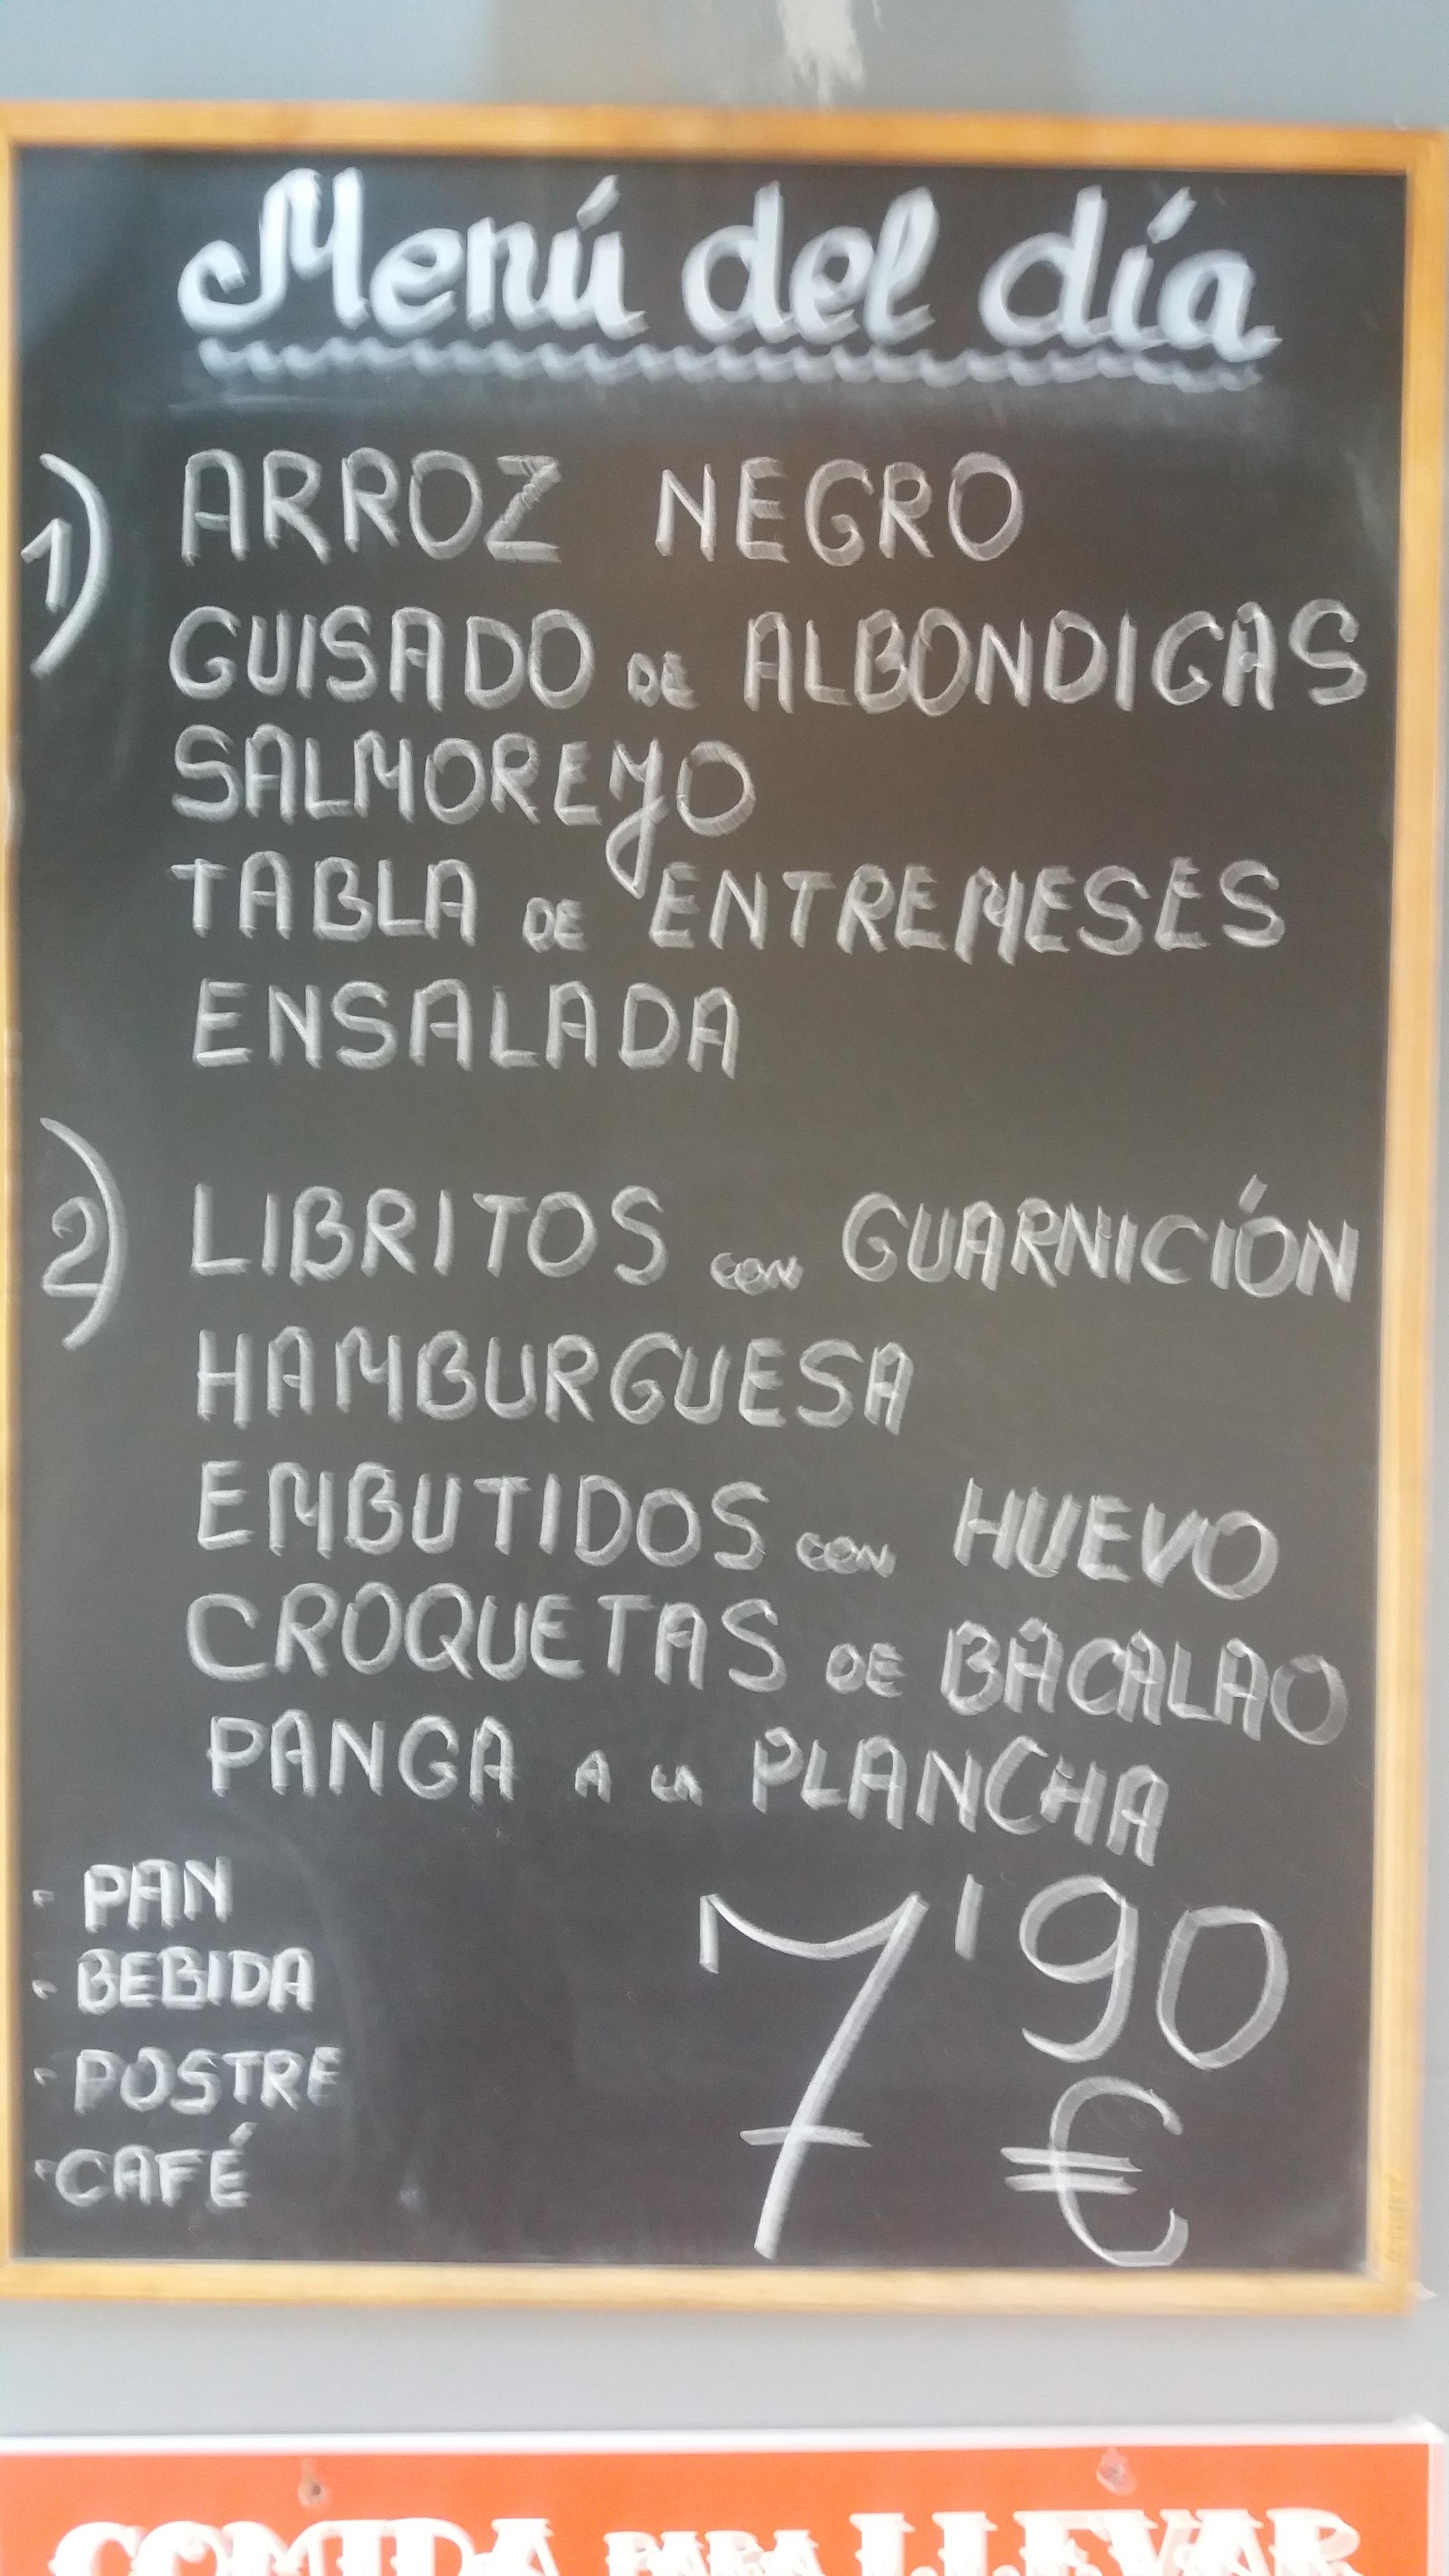 Menú del día
1) ARROZ NEGRO
GUISADO DE ALBONDIGAS
SALMOREJO
TABLA DE ENTREMESES
ENSALADA
2) LIBRITOS CON GUARNICIÓN
HAMBURGUESA
EMBUTIDOS CON HUEVO
CROQUETAS DE BACALAO
PANGA A LA PLANCHA
- PAN
- BEBIDA
- POSTRE
- CAFÉ
7'90
€
COMIDA PARA LLEVAR